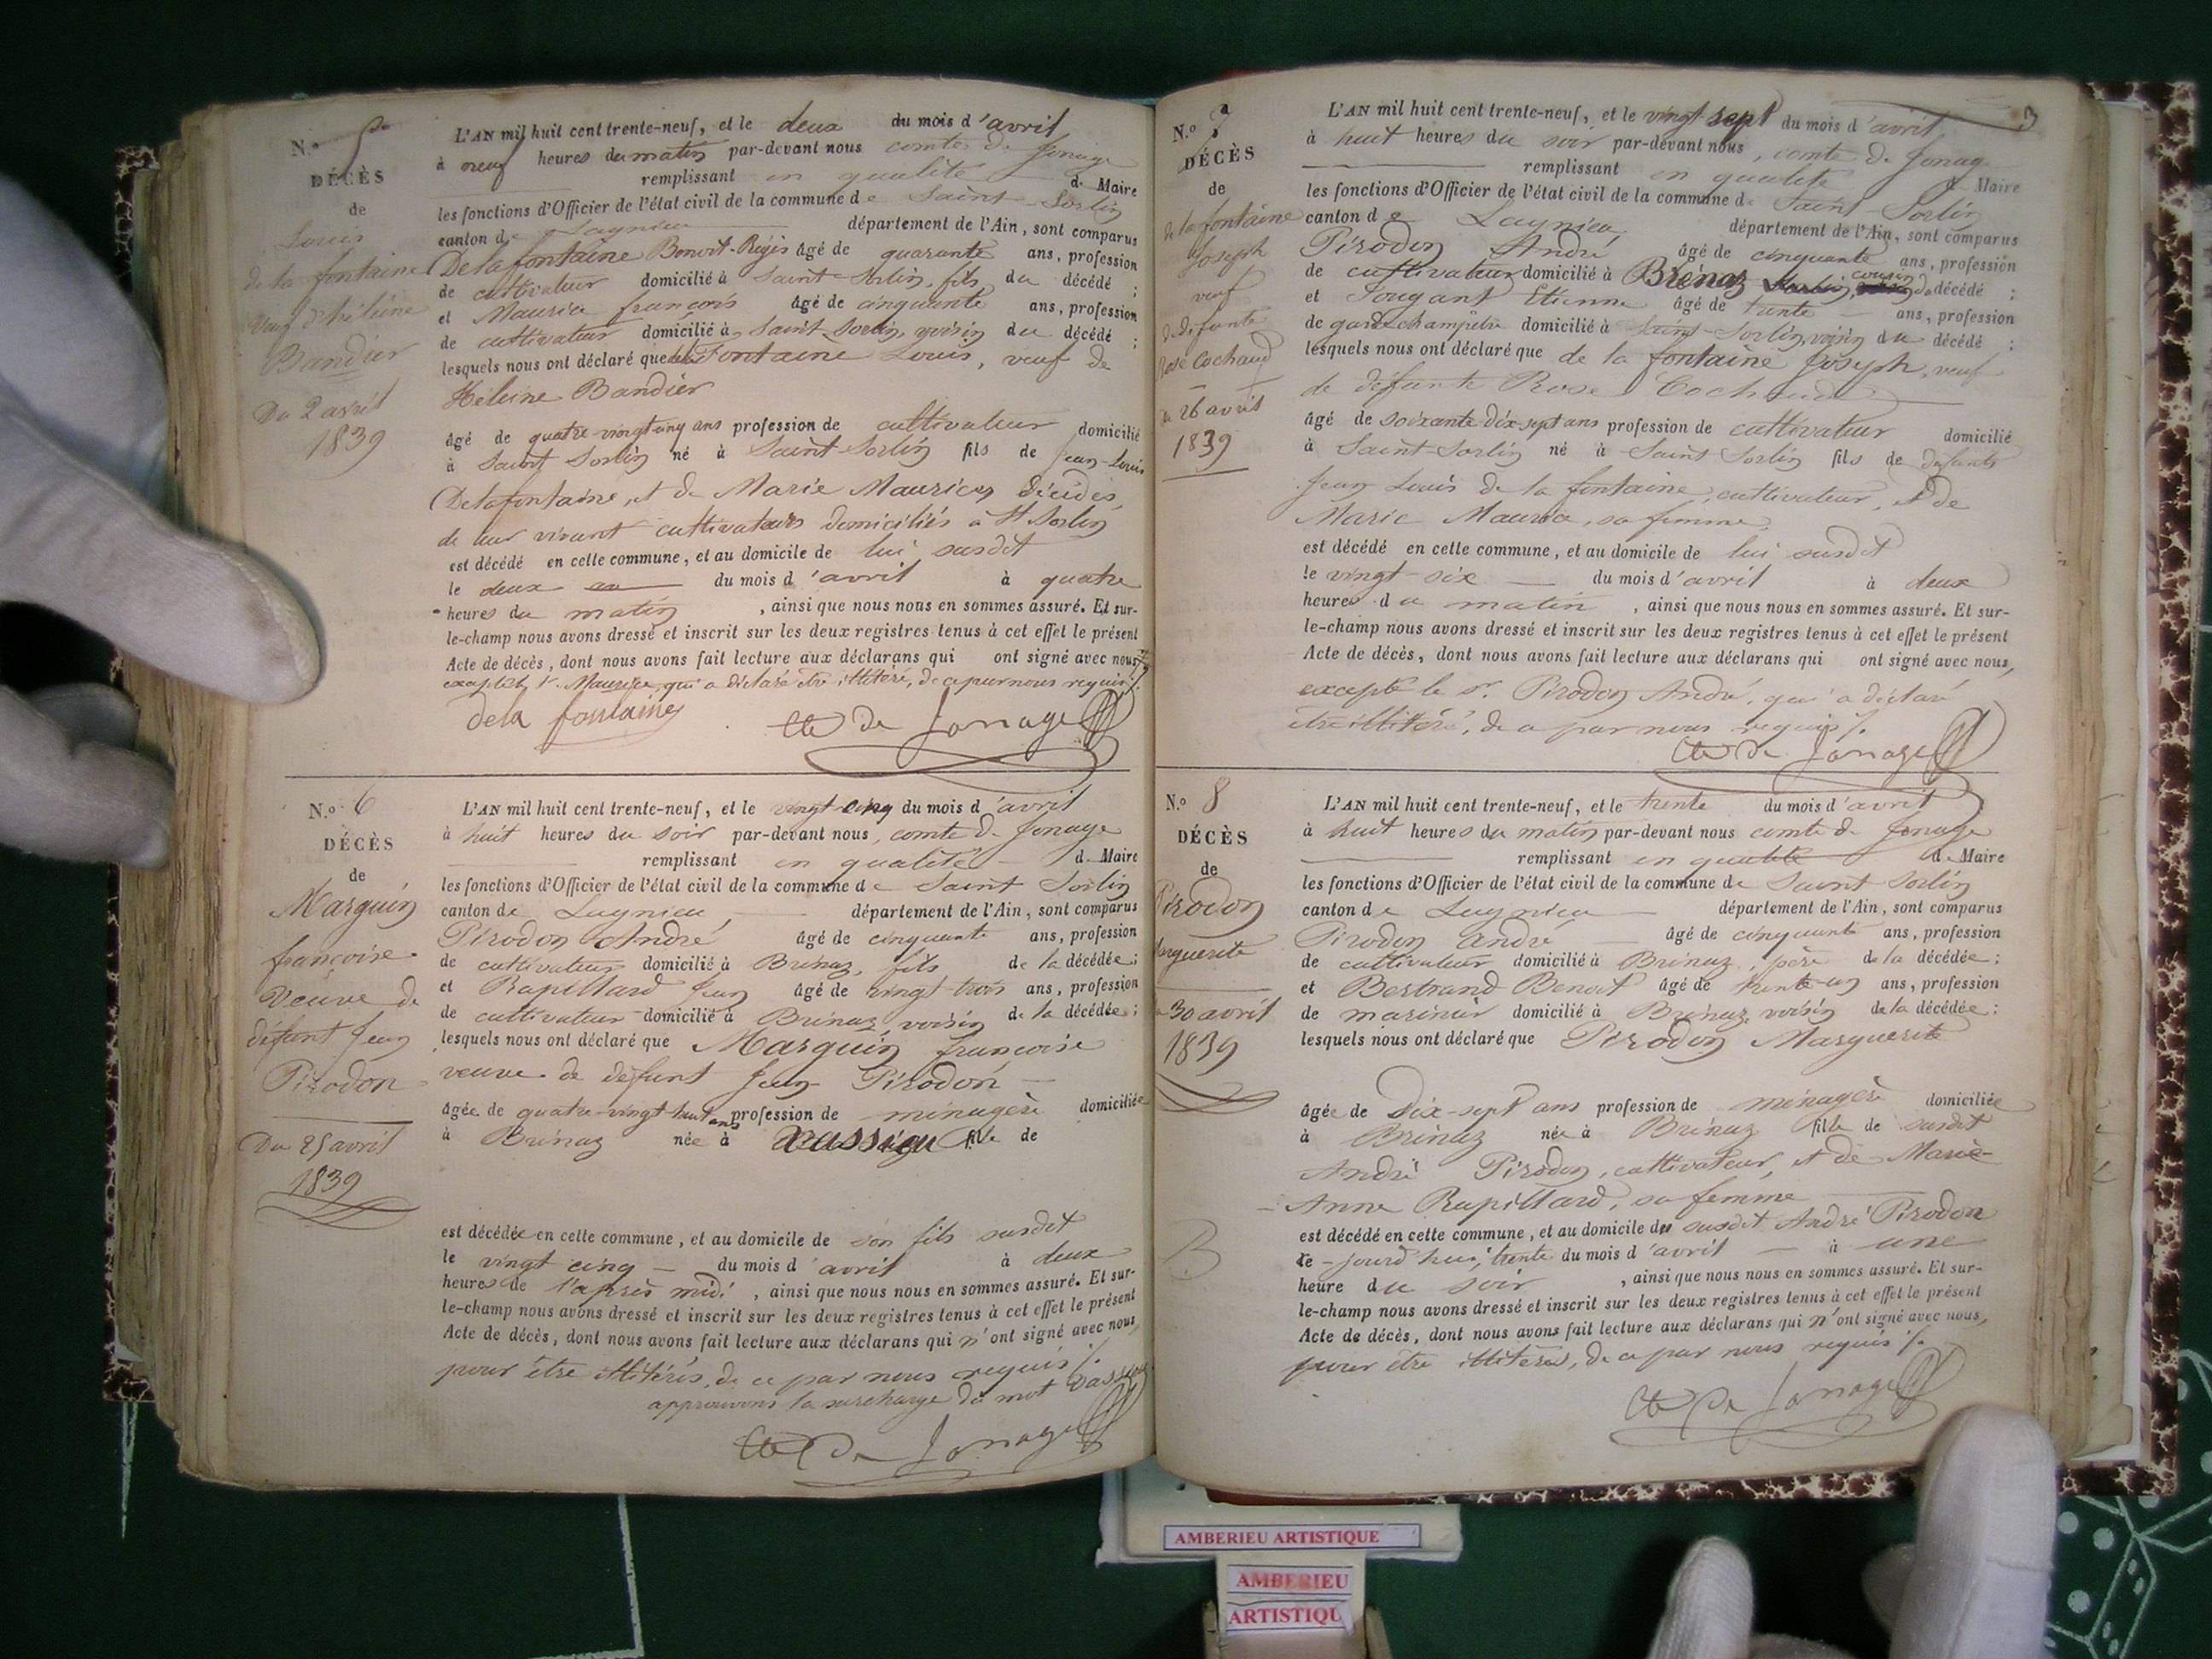 N.o 5
DÉCÈS
de
Louis
de la fontaine
veuf d'hélène
Bandier
Du 2 avril
1839
L'AN mil huit cent trente-neuf, et le deux du mois d'avril
à neuf heures du matin par-devant nous comte de Jonage
remplissant en qualité de Maire
les fonctions d'Officier de l'état civil de la commune de Saint-Sorlin
canton de Lagnieu département de l'Ain, sont comparus
Delafontaine Benoit-Régis âgé de quarante ans, profession
de cultivateur domicilié à Saint-Sorlin, fils du décédé ;
et Maurice françois âgé de cinquante ans, profession
de cultivateur domicilié à Saint-Sorlin, voisin du décédé ;
lesquels nous ont déclaré que dela Fontaine Louis, veuf de
Hélène Bandier
âgé de quatre vingt cinq ans profession de cultivateur domicilié
à Saint Sorlin né à Saint-Sorlin fils de Jean-Louis
Delafontaine, et de Marie Maurice, décédés,
de leur vivant cultivateurs domiciliés à St Sorlin
est décédé en cette commune, et au domicile de lui susdit
le deux du mois d'avril à quatre
heures du matin, ainsi que nous nous en sommes assuré. Et sur-
le-champ nous avons dressé et inscrit sur les deux registres tenus à cet effet le présent
Acte de décès, dont nous avons fait lecture aux déclarans qui ont signé avec nous
excepté le Sr Maurice qui a déclaré être illitéré, de ce par nous requis ./.
dela fontaine Cte De Jonage
N.o 6
DÉCÈS
de
Marguin
françoise
veuve de
défunt Jean
Pirodon
Du 25 avril
1839
L'AN mil huit cent trente-neuf, et le vingt cinq du mois d'avril
à huit heures du soir par-devant nous, comte de Jonage
remplissant en qualité de Maire
les fonctions d'Officier de l'état civil de la commune de Saint Sorlin
canton de Lagnieu, département de l'Ain, sont comparus
Pirodon André âgé de cinquante ans, profession
de cultivateur domicilié à Brénaz, fils de la décédée ;
et Rapillard Jean âgé de vingt trois ans, profession
de cultivateur domicilié à Brénaz, voisin de la décédée ;
lesquels nous ont déclaré que Marguin françoise
veuve de défunt Jean Pirodon
âgée de quatre-vingt-huit ans profession de ménagère domiciliée
à Brénaz née à vassieu fille de
est décédée en cette commune, et au domicile de son fils susdit
le vingt cinq du mois d'avril à deux
heures de l'après midi, ainsi que nous nous en sommes assuré. Et sur-
le-champ nous avons dressé et inscrit sur les deux registres tenus à cet effet le présent
Acte de décès, dont nous avons fait lecture aux déclarans qui n'ont signé avec nous,
pour être illitérés, de ce par nous requis ./.
approuvons la surcharge du mot vassieu
Cte De Jonage
3
N.o 7
DÉCÈS
de
de la fontaine
Joseph
veuf
de défunte
Rose Cochaud
du 26 avril
1839
L'AN mil huit cent trente-neuf, et le vingt sept du mois d'avril
à huit heures du soir par-devant nous, comte de Jonage
remplissant en qualité de Maire
les fonctions d'Officier de l'état civil de la commune de Saint-Sorlin
canton de Lagnieu, département de l'Ain, sont comparus
Pirodon André âgé de cinquante ans, profession
de cultivateur domicilié à Brénaz cousin du décédé ;
et Jougant Etienne âgé de trente ans, profession
de garde champêtre domicilié à Saint-Sorlin, voisin du décédé ;
lesquels nous ont déclaré que de la fontaine Joseph, veuf
de défunte Rose Cochaud
âgé de soixante dix-sept ans profession de cultivateur domicilié
à Saint-Sorlin né à Saint Sorlin fils de défunts
Jean Louis de la fontaine, cultivateur, et de
Marie Maurice, sa femme,
est décédé en cette commune, et au domicile de lui susdit
le vingt-six du mois d'avril à deux
heures du matin, ainsi que nous nous en sommes assuré. Et sur-
le-champ nous avons dressé et inscrit sur les deux registres tenus à cet effet le présent
Acte de décès, dont nous avons fait lecture aux déclarans qui ont signé avec nous,
excepté le sr. Pirodon André, qui a déclaré
être illitéré, de ce par nous requis ./.
Cte De Jonage
N.o 8
DÉCÈS
de
Pirodon
Marguerite
du 30 avril
1839
B
L'AN mil huit cent trente-neuf, et le trente du mois d'avril
à huit heures du matin par-devant nous comte de Jonage
remplissant en qualité de Maire
les fonctions d'Officier de l'état civil de la commune de Saint Sorlin
canton de Lagnieu département de l'Ain, sont comparus
Pirodon André âgé de cinquante ans, profession
de cultivateur domicilié à Brénaz, père de la décédée ;
et Bertrand Benoit âgé de trente-un ans, profession
de marinier domicilié à Brénaz, voisin de la décédée ;
lesquels nous ont déclaré que Pirodon Marguerite
âgée de Dix-sept ans profession de ménagère domiciliée
à Brénaz née à Brénaz fille de susdit
André Pirodon, cultivateur, et de Marie-
Anne Rapillard, sa femme
est décédé en cette commune, et au domicile du susdit André Pirodon
ce-jourd'hui, trente du mois d'avril à une
heure du soir, ainsi que nous nous en sommes assuré. Et sur-
le-champ nous avons dressé et inscrit sur les deux registres tenus à cet effet le présent
Acte de décès, dont nous avons fait lecture aux déclarans qui n'ont signé avec nous,
pour être illitérés, de ce par nous requis ./.
Cte De Jonage
AMBERIEU ARTISTIQUE
AMBERIEU
ARTISTIQU